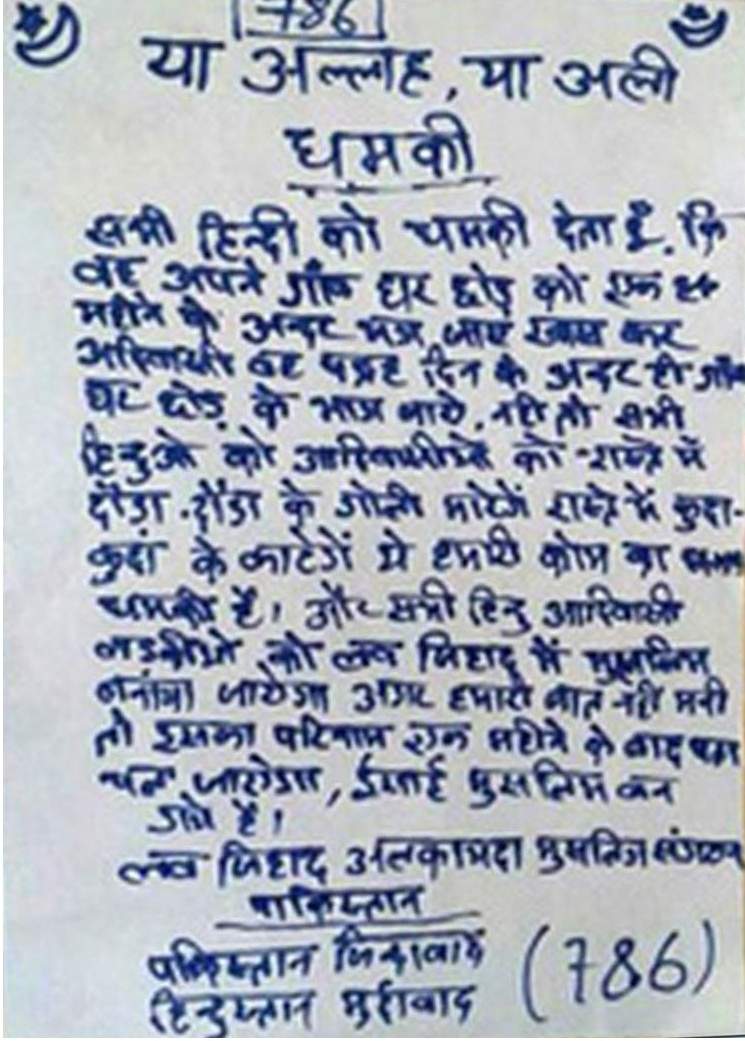 786
या अल्लाह, या अली
धमकी
सभी हिन्दी को धमकी देता हूँ, कि
वह अपने गाँव घर छोड़ को एक
महीने के अन्दर भाग जाए खास कर
आदिवासी वह पन्द्रह दिन के अन्दर ही गाँव
घर छोड़ के भाग जाये, नही तो सभी
हिन्दुओ को आदिवासीयो को रास्ते में
दौड़ा-दौड़ा के गोली मारेगें रास्ते में कुदा-
कुदा के काटेगें ये हमारी कोम का
धमकी है। और सभी हिन्दु आदिवासी
लडकीयो को लव जिहाद में मुसलिम
बनाया जायेगा अगर हमारी बात नही मनी
तो इसका परिणाम एक महीने के बाद पता
चल जायेगा, ईसाई मुसलिम बन
गये है।
लव जिहाद अलकायदा मुसलिम संगठन
पाकिस्तान
पाकिस्तान जिन्दाबाद
हिन्दुस्तान मुर्दाबाद
(786)